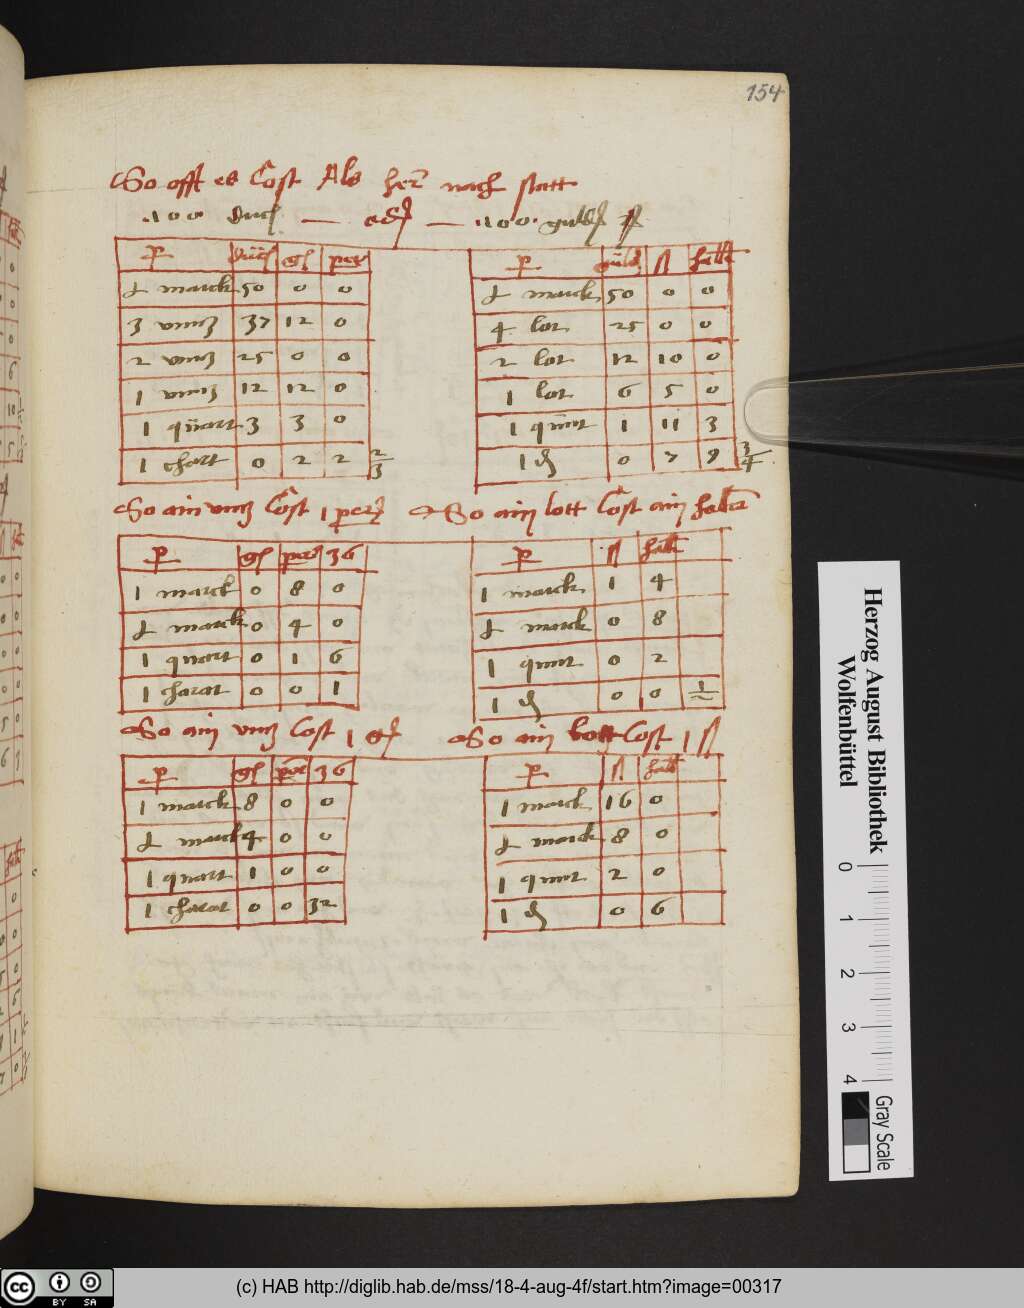 154
So offt es Cost Als her nach statt
100 duc — oder — 100 guld
p duc gl per
½ marck 50 0 0
3 vnntz 37 12 0
2 vntz 25 0 0
1 vnntz 12 12 0
1 quart 3 3 0
1 chart 0 2 2 2/3
p guld ß hall
½ marck 50 0 0
4 lot 25 0 0
2 lot 12 10 0
1 lot 6 5 0
1 quint 1 11 3
1 ₰ 0 7 9 3/4
So ain vntz Cost 1 per
p gl per 36
1 marck 0 8 0
½ marck 0 4 0
1 quart 0 1 6
1 charat 0 0 1
So ain lott Cost ain haller
p ß hall
1 marck 1 4
½ marck 0 8
1 quint 0 2
1 ₰ 0 0 1/2
So ain vntz Cost 1 gl
p gl per 36
1 marck 8 0 0
½ marck 4 0 0
1 quart 1 0 0
1 charat 0 0 32
So ain lott Cost 1 ß
p ß hall
1 marck 16 0
½ marck 8 0
1 quint 2 0
1 ₰ 0 6
Herzog August Bibliothek
Wolfenbüttel
0 1 2 3 4
Gray Scale
cc BY SA
(c) HAB http://diglib.hab.de/mss/18-4-aug-4f/start.htm?image=00317